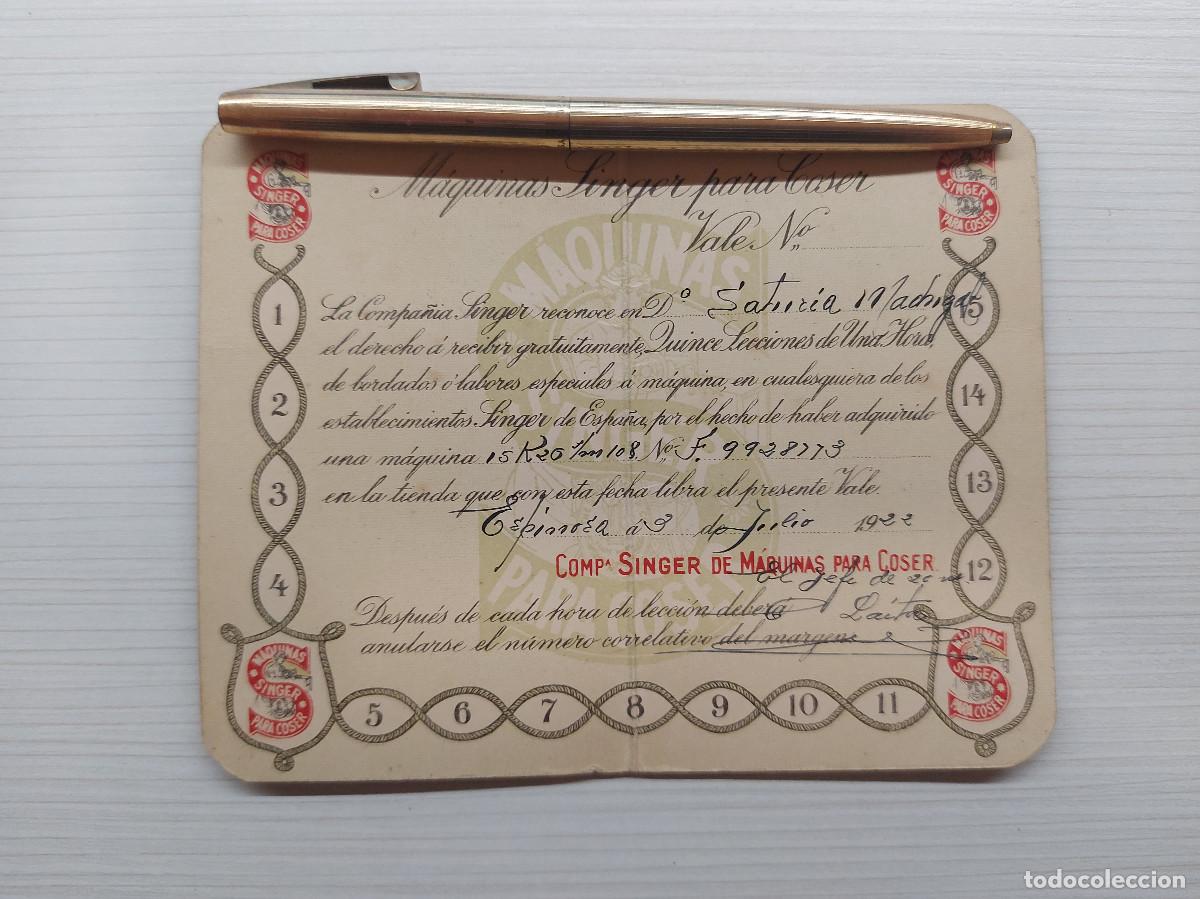 MAQUINAS SINGER PARA COSER
MAQUINAS SINGER PARA COSER
Máquinas Singer para Coser
Vale Nº
MÁQUINAS
La Compañia Singer reconoce en Dª Saturia Madrigal
el derecho á recibir gratuitamente, Quince Lecciones de Una Hora,
de bordados ó labores especiales á máquina, en cualesquiera de los
establecimientos Singer de España, por el hecho de haber adquirido
una máquina 15K26 108 No F. 9928773
en la tienda que con esta fecha libra el presente Vale.
Espinosa á 3 de Julio 1922
COMPª SINGER DE MÁQUINAS PARA COSER
El Jefe de
PARA COSER
Después de cada hora de lección deberá
anularse el número correlativo del margen
MAQUINAS SINGER PARA COSER
MAQUINAS SINGER PARA COSER
1
2
3
4
5 6 7 8 9 10 11
12
13
14
15
todocoleccion